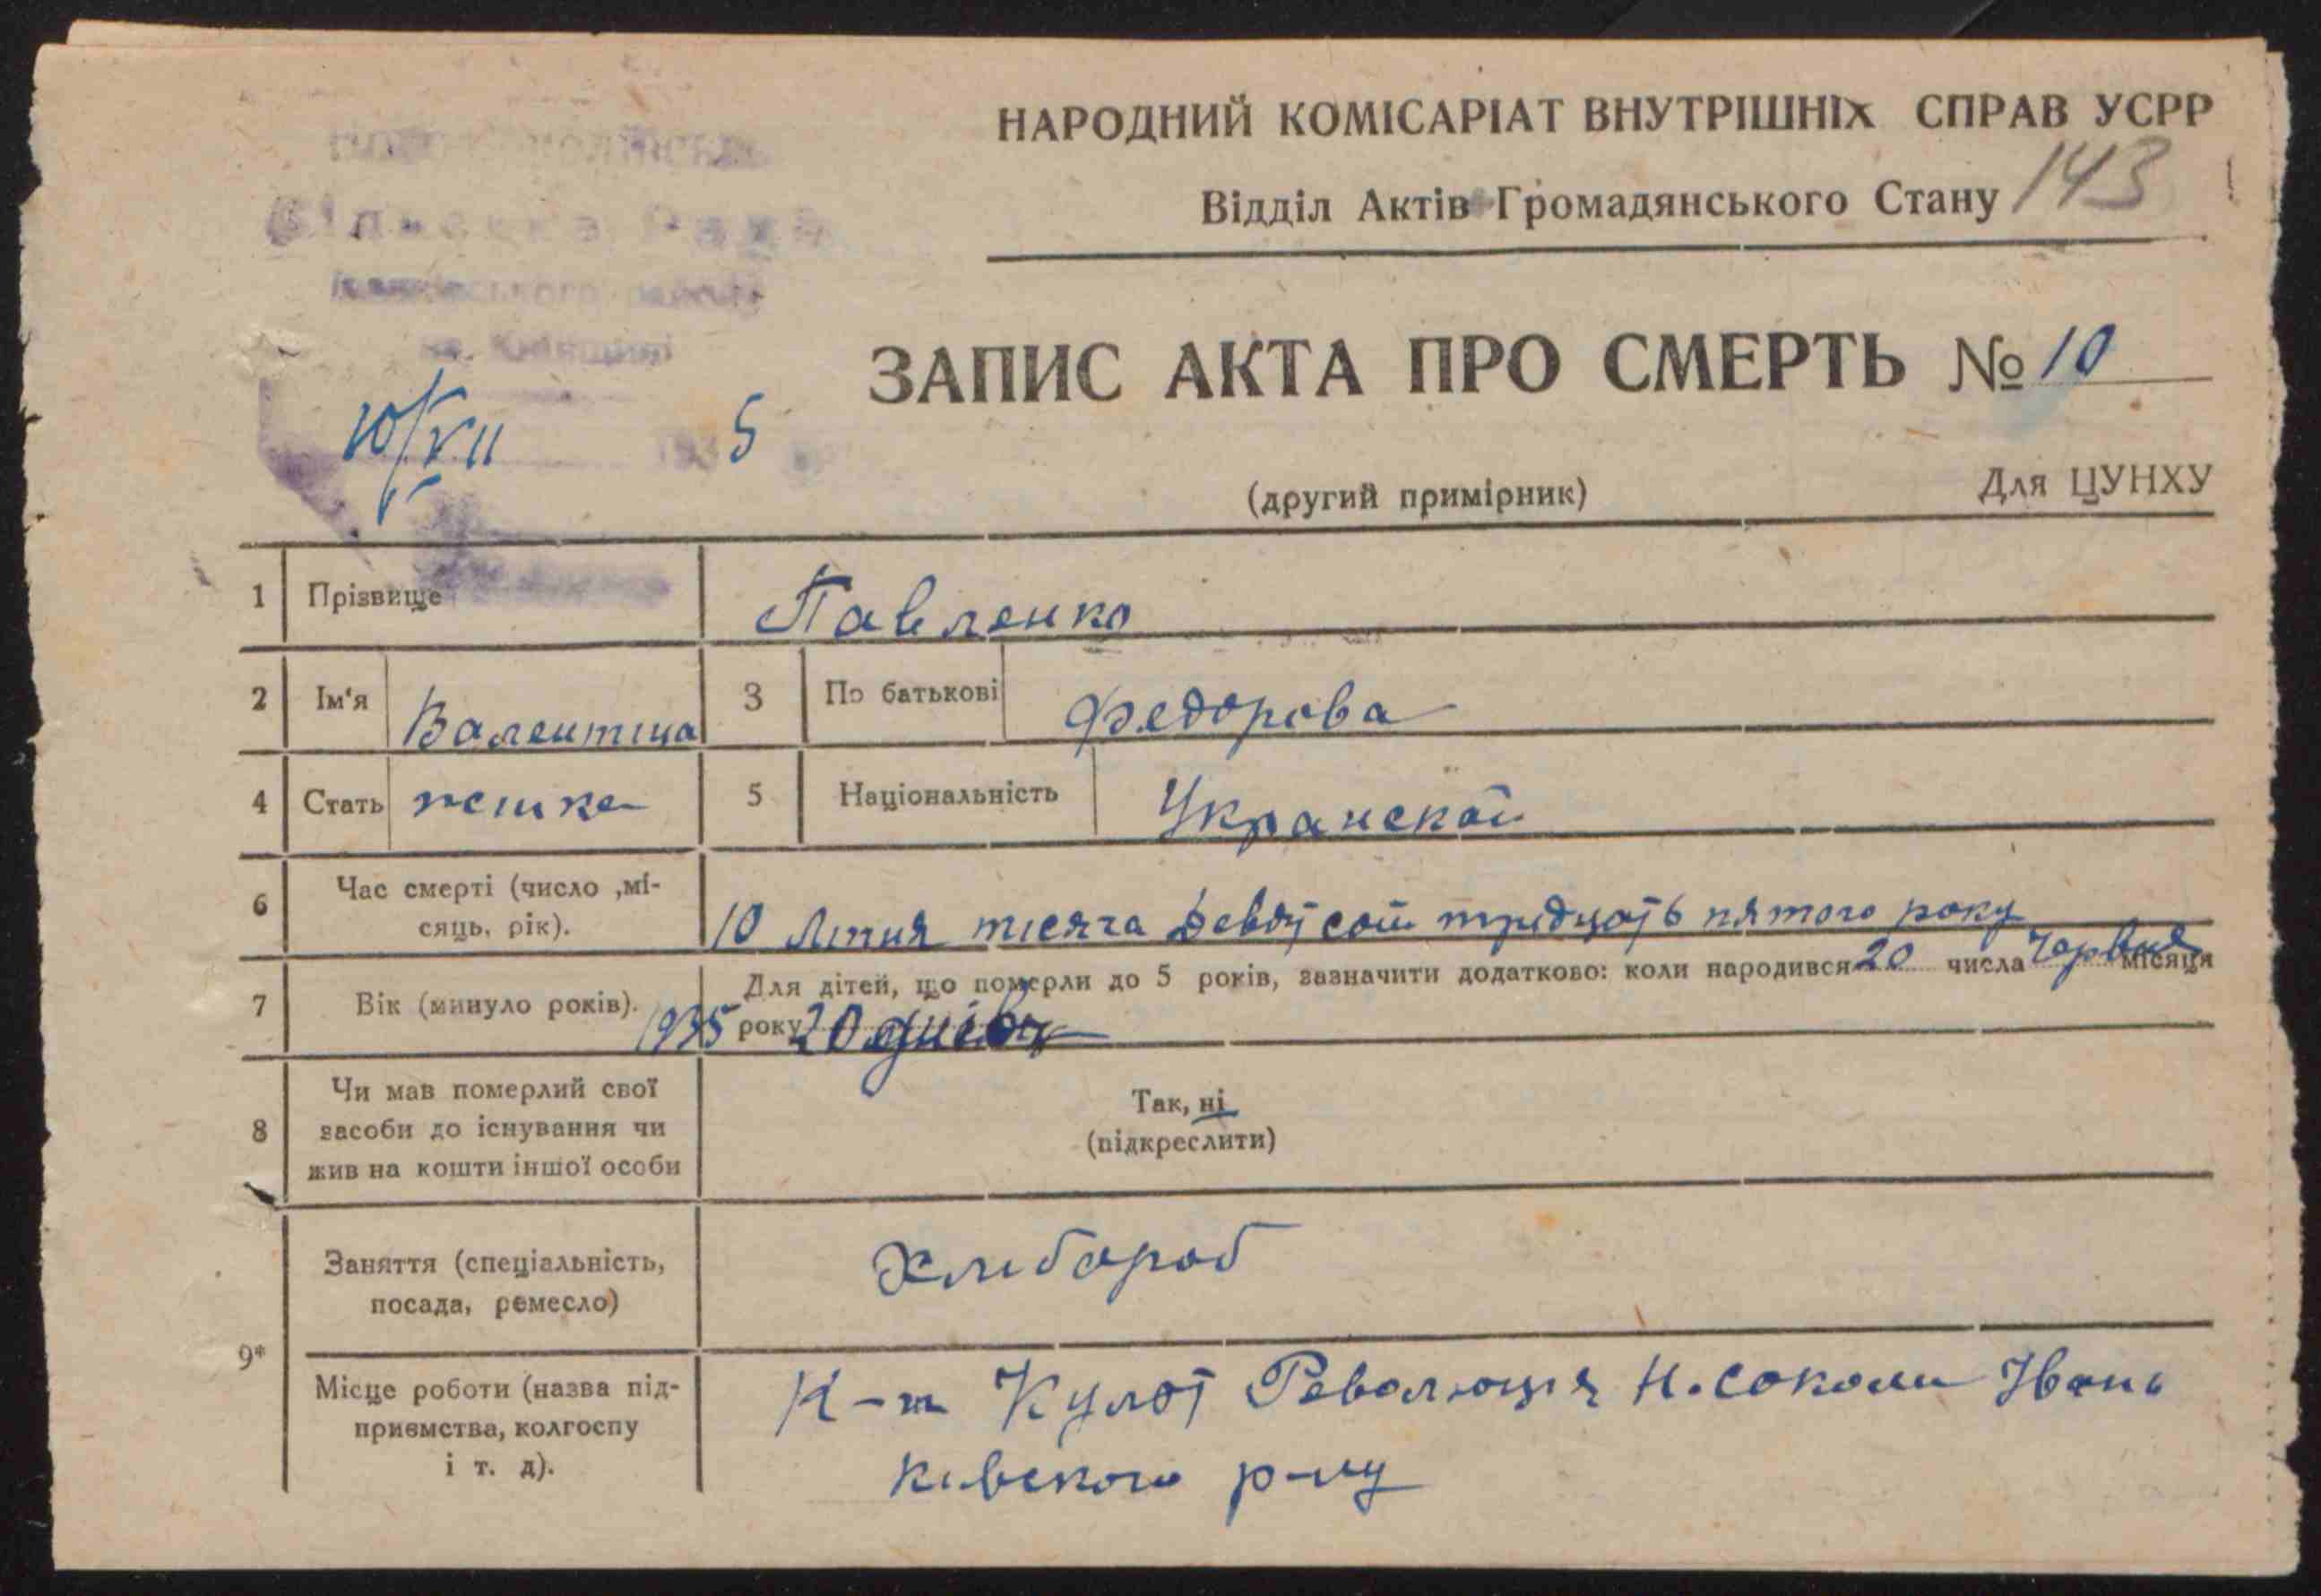 НАРОДНИЙ КОМІСАРІАТ ВНУТРІШНІХ СПРАВ УСРР
Відділ Актів Громадянського Стану 143
Сільська Рада
Іванківського району
на Київщині
10/VII 1935
ЗАПИС АКТА ПРО СМЕРТЬ № 10
(другий примірник) Для ЦУНХУ
1 Прізвище Павленко
2 Ім'я Валентина 3 По батькові Федорова
4 Стать женска 5 Національність Укранской
6 Час смерті (число ,мі-
сяць, рік). 10 Липня тисяча девятсот тридцать пятого року
7 Вік (минуло років). Для дітей, що померли до 5 років, зазначити додатково: коли народився 20 числа Червня місяця
1935 року 20 днів
8 Чи мав померлий свої
засоби до існування чи
жив на кошти іншої особи
Так, ні
(підкреслити)
9* Заняття (спеціальність,
посада, ремесло) Хлибороб
Місце роботи (назва під-
приємства, колгоспу
і т. д).
К-т Культ Революция Н. Соколи Івань
ківского р-ну